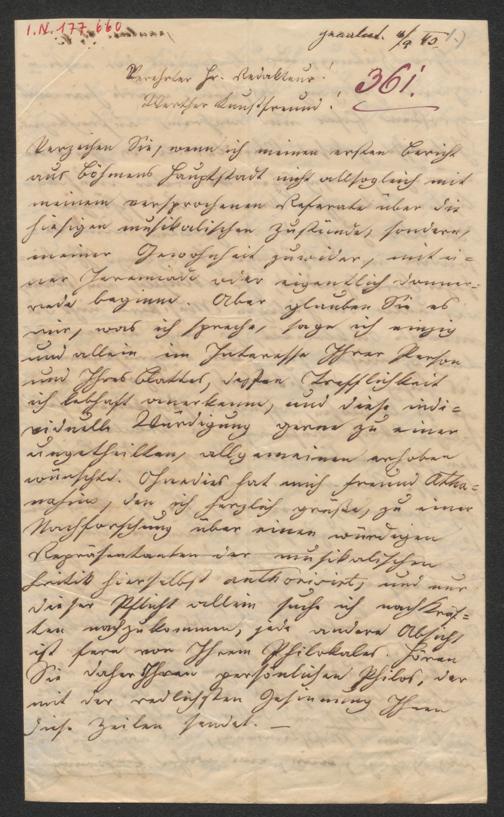 I.N. 177.660
1.)
361.
Verehrter Hr. Redakteur!
Werther Kunstfreund!
Verzeihen Sie, wenn ich meinen ersten Bericht
aus Böhmens Hauptstadt nicht allsogleich mit
meinem versprochenen Referate über die
hiesigen musikalischen Zustände, sondern,
meiner Gewohnheit zuwider, mit ei-
ner Jeremiade oder eigentlich Donner-
rede beginne. Aber glauben Sie es
mir, was ich spreche, sage ich einzig
und allein im Interesse Ihrer Person
und Ihres Blattes, dessen Trefflichkeit
ich lebhaft anerkenne, und diese indi-
viduelle Würdigung gerne zu einer
ungetheilten, allgemeinen erhoben
wünschte. Ohnedies hat mich Freund Atha-
nasius, den ich herzlich grüße, zu einer
Nachforschung über einen würdigen
Repräsentanten der musikalischen
Kritik hierselbst authorisirt, und nur
dieser Pflicht allein suche ich nach Kräf-
ten nachzukommen, jede andere Absicht
ist fern von Ihrem Philokales. Hören
Sie daher Ihren persönlichen Philos, der
mit der redlichsten Gesinnung Ihnen
diese Zeilen sendet. —